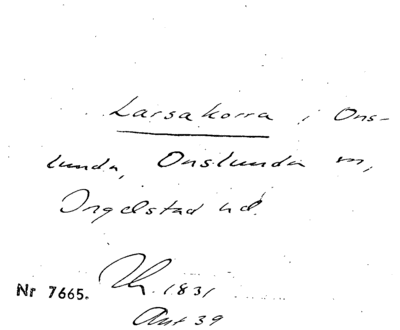 Larsakorra i Ons-
lunda, Onslunda sn,
Ingelstad hd.
Nr 7665. 1831
39